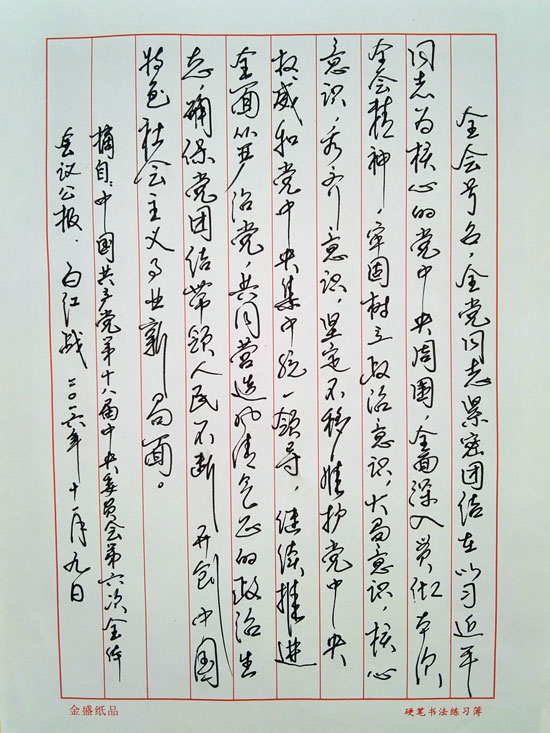 全会号召，全党同志紧密团结在以习近平
同志为核心的党中央周围，全面深入贯彻本次
全会精神，牢固树立政治意识，大局意识，核心
意识，看齐意识，坚定不移维护党中央
权威和党中央集中统一领导，继续推进
全面从严治党，共同营造风清气正的政治生
态，确保党团结带领人民不断开创中国
特色社会主义事业新局面。
摘自：中国共产党第十八届中央委员会第六次全体
会议公报． 白红战 二〇一六年十一月九日
金盛纸品
硬笔书法练习簿